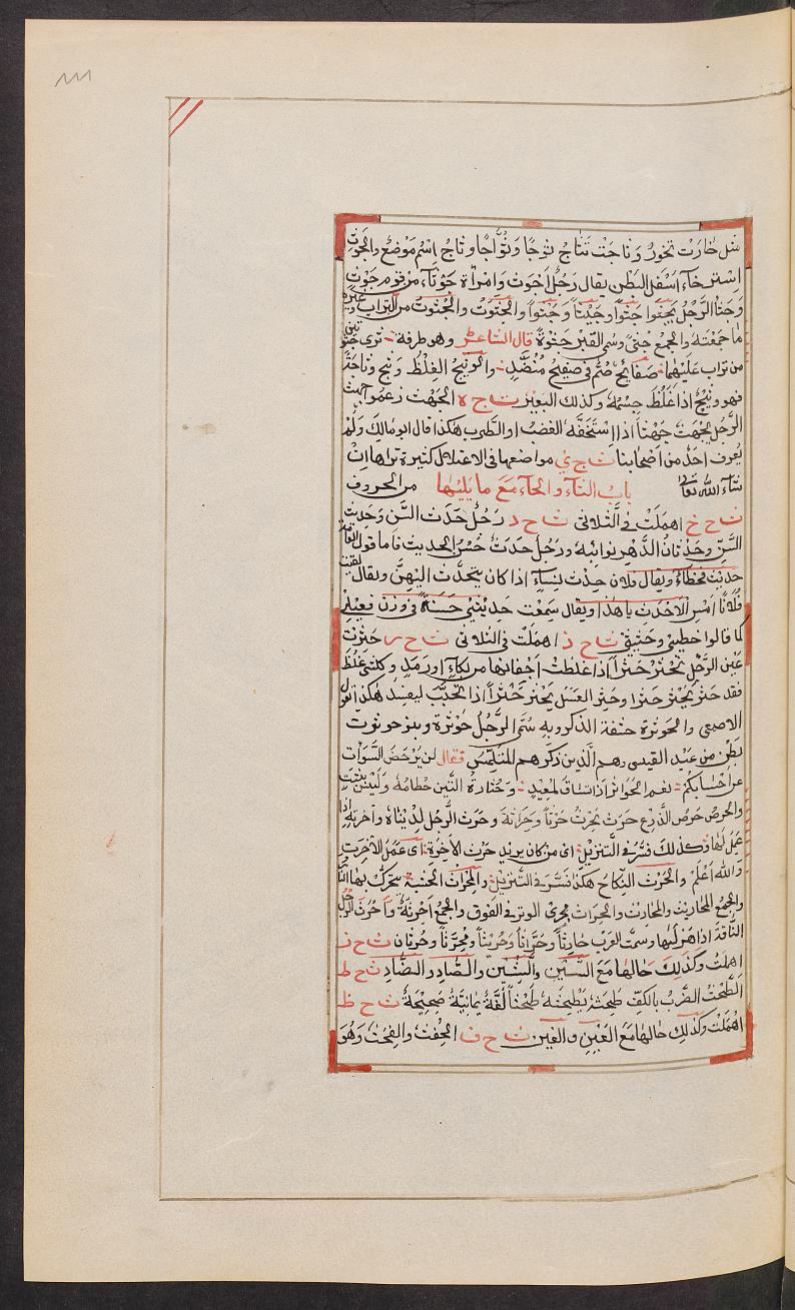 مثل خارت تخور وثاجت تثاج ثوجا وثواجا وثاج اسم موضع والجوث
استرخاء اسفل البطن يقال رجل اجوث وامراة جوثاء من قوم جوث
وجثا الرجل يجثوا جثوا وجثيا وجثوا والجثوت والجثوت من التراب وغيره
ما جمعته والجمع جثى وسمى القبر جثوة قال الشاعر وهو طرفة ترى جثوتين
من تراب عليهما صفائح صم فى صفيح منضد والوثيج الغلظ وثج وثاجة
فهو وثيج اذا غلظ جسمه وكذلك البعير ث ج ه الجهث زعموا جهث
الرجل يجهث جهثا اذا استخفه الغضب او الطرب هكذا قال ابو مالك ولم
يعرف احد من اصحابنا ث ج ي مواضعها فى الاعتلال كثيرة تراها ان
شاء الله تعا باب الثاء والحاء مع ما يليها من الحروف
ث ح خ اهملت فى الثلاثى ث ح د رجل حدث السن وحديث
السن وحدثان الدهر نوائبه ورجل حدث حسن الحديث فاما قول العامة
حديث فخطاء ويقال فلان حدث نساء اذا كان يتحدث اليهن ويقال لقيت
فلانا امس الاحدث يا هذا ويقال سمعت حديثى حسنة فى وزن فعيلى
كما قالوا خطيبى وحثيثى ث ح ذ اهملت فى الثلاثى ث ح ر حثرت
عين الرجل تحثر حثرا اذا غلظت اجفانها من بكاء او رمد وكل شئ غلظ
فقد حثر يحثر حثرا وحثر العسل يحثر حثرا اذا تحبب ليفسد هكذا قول
الاصمعى والحوثرة حشفة الذكر وبه سمى الرجل حوثرة وبنو حوثرة
بطن من عبد القيس وهم الذين ذكرهم المتلمس فقال لن يرحض السوات
عن احسابكم نعم الحواثر اذ تساق لمعبد وحثارة التبن حطامه وليس بثبت
والحرث حرث الزرع حرث يحرث حرثا وحراثة وحرث الرجل لدنياه واخرته اذا
عمل لها وكذلك فسر فى التنزيل اى من كان يريد حرث الآخرة اى عمل الآخرة
والله اعلم والحرث النكاح هكذا فسر فى التنزيل والمحراث الخشبة تحرك بها النار
والجمع المحاريث والمحارث والحراث مجرى الوتر فى الفوق والجمع احرثة واحرث الرجل
الناقة اذا هزلها وسمت العرب حارثا وحراثا وحريثا ومحرثا وحرثان ث ح ز
اهملت وكذلك حالها مع السين والشين والصاد والضاد ث ح ط
الطحث الضرب بالكف طحثه يطحثه طحثا لغة يمانية صحيحة ث ح ظ
اهملت وكذلك حالها مع العين والغين ث ح ف الحفث والفحث وهو